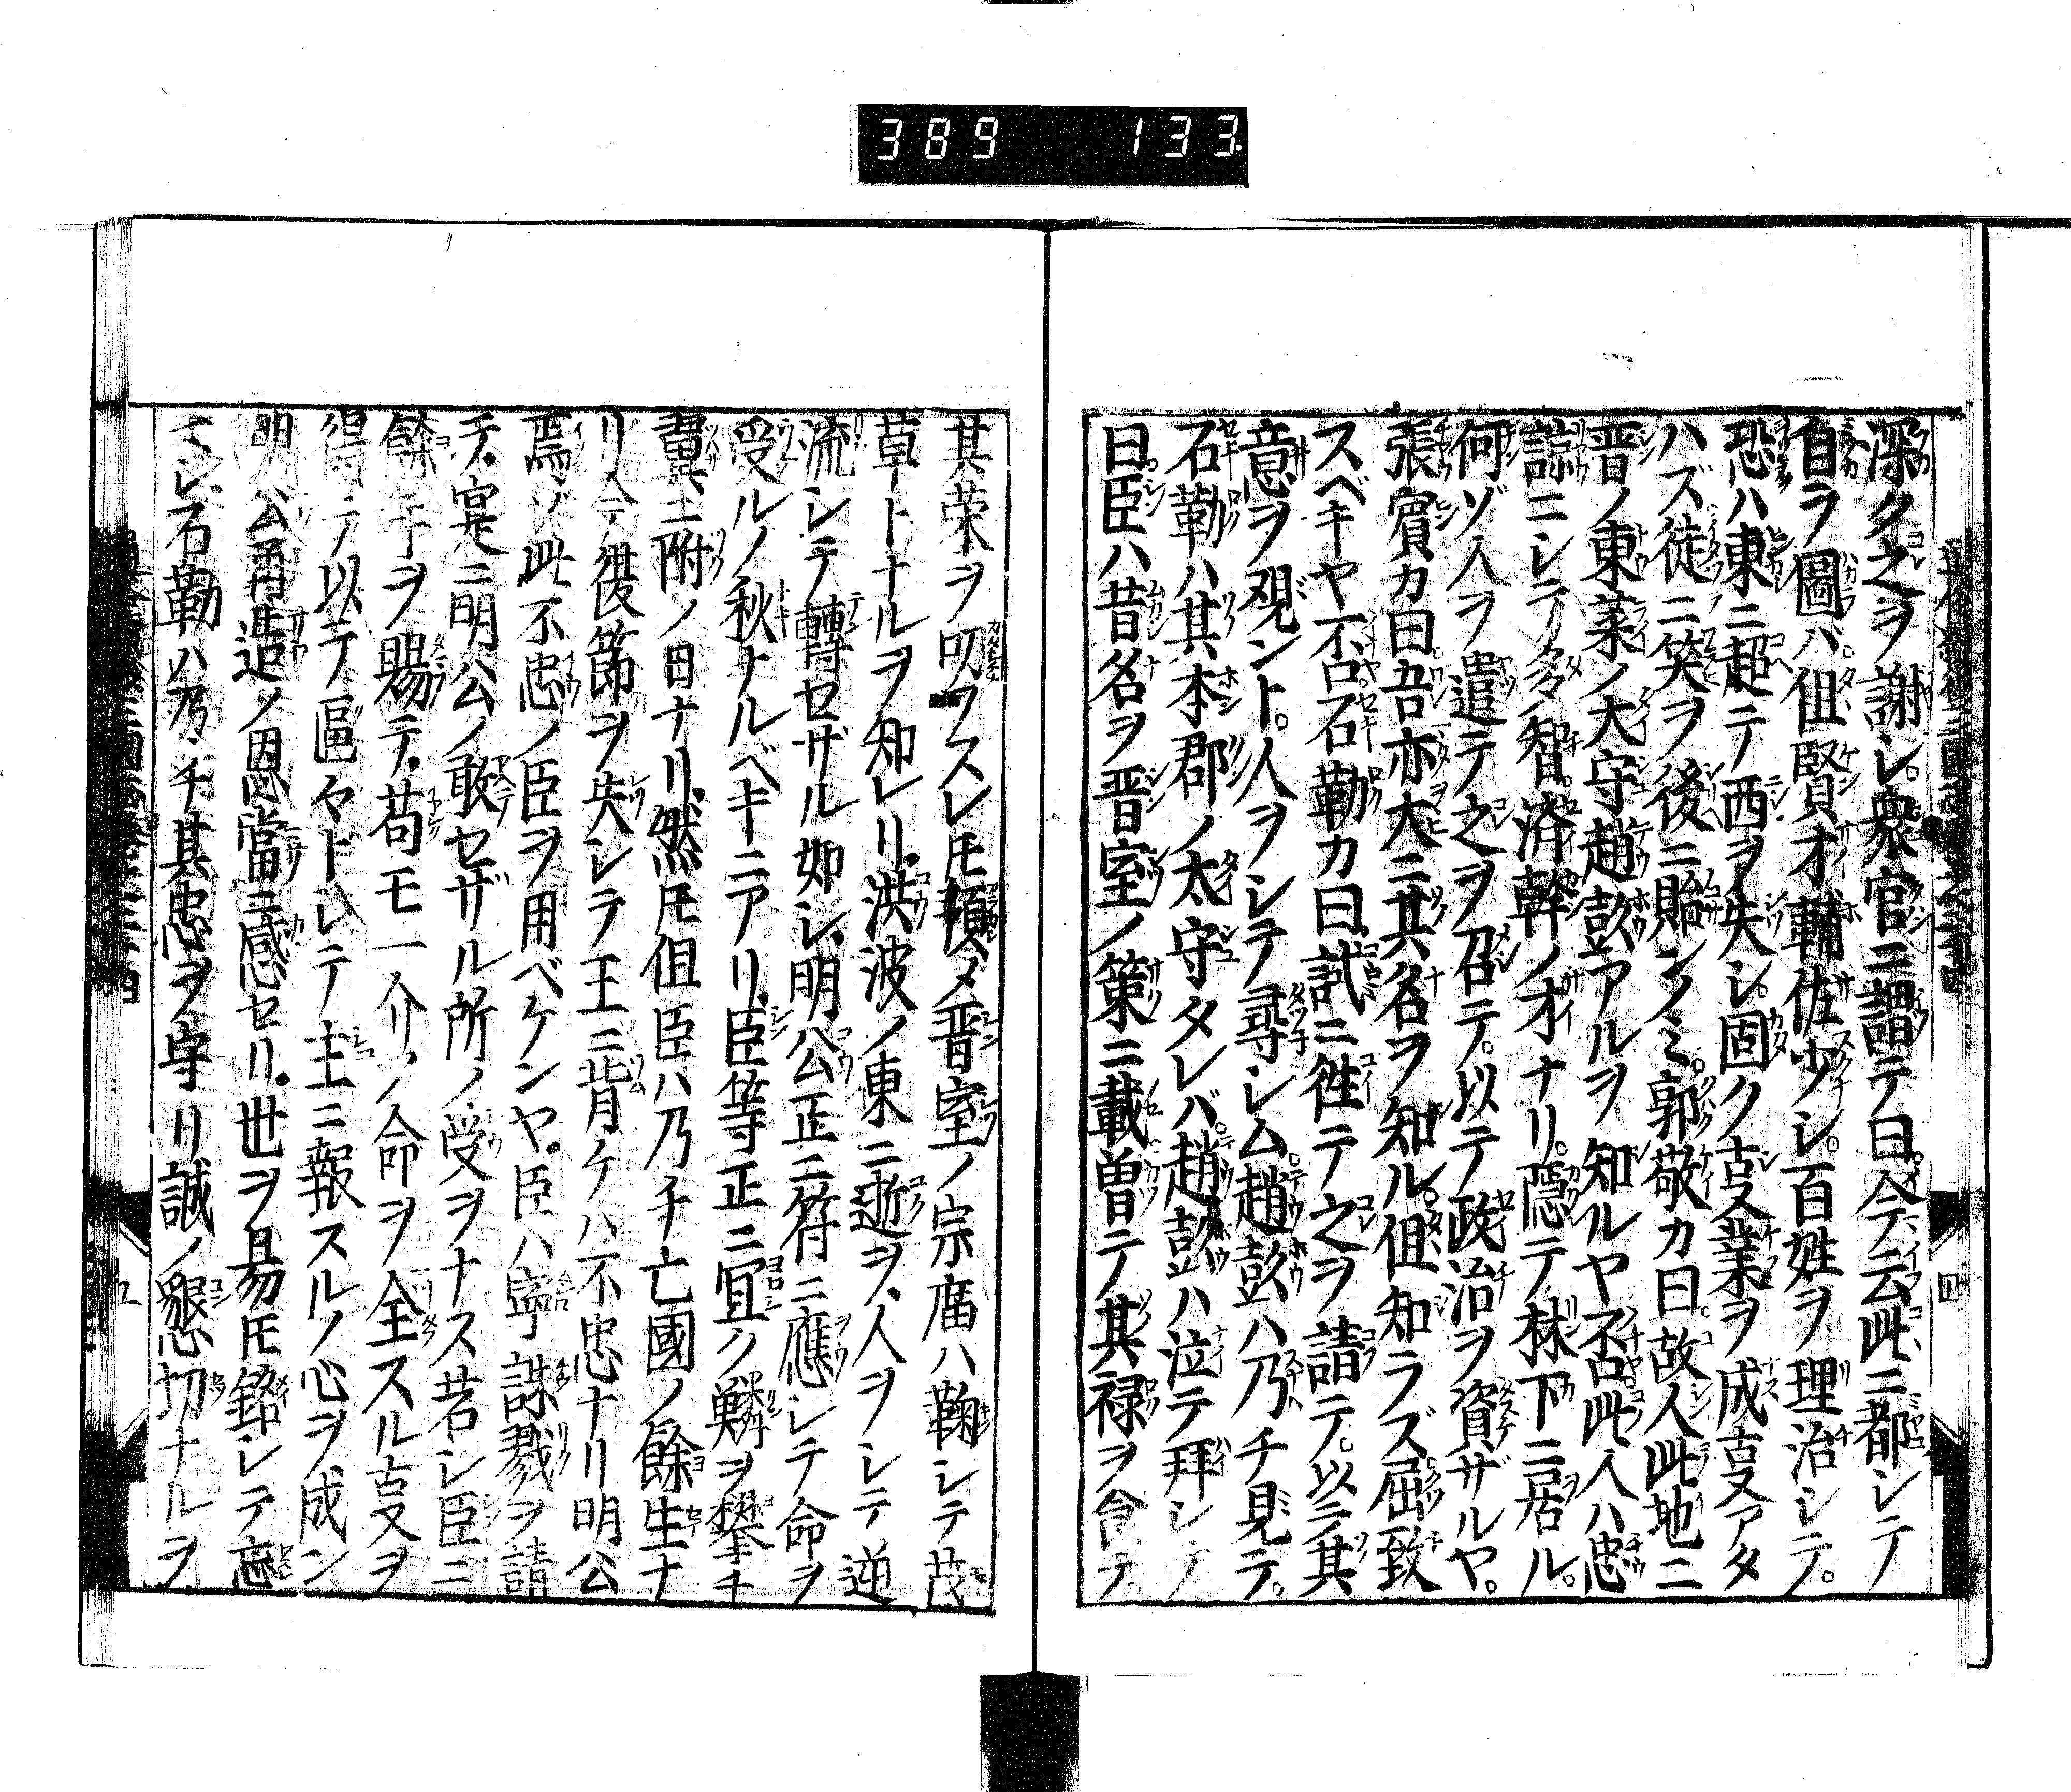 389 133
深ク之ヲ謝シ。衆官ニ謂テ曰。今云此ニ都シテ
自ラ圖バ。但賢才輔佐少シ。百姓ヲ理治シテ。
恐ハ東ニ超テ西ヲ失シ。固ク叓業ヲ成叓アタ
ハズ徒ニ笑ヲ後ニ貽ンノミ。郭敬カ曰。故人此地ニ
晋ノ東莱ノ大守趙彭アルヲ知ルヤ否。此人ハ忠
諒ニシテ多智。済幹ノオナリ。隠テ林下ニ居ル。
何ゾ人ヲ遣テ之ヲ召テ。以テ政治ヲ資ザルヤ。
張賓カ曰吾亦大ニ其名ヲ知ル。但知ラズ屈致
スベキヤ不。石勒カ曰。試ニ徃テ之ヲ請テ。以テ其
意ヲ覌ント。人ヲシテ尋シム。趙彭ハ乃チ見テ。
石勒ハ其本郡ノ太守タレバ。趙彭ハ泣テ拜シテ
曰。臣ハ昔名ヲ晋室ノ策ニ載曽テ其禄ヲ食テ
其荣ヲ叨フスレ𪜈頓メ晋室ノ宗庿ハ鞠シテ茂
草トナルヲ知レリ。洪波ノ東ニ逝ヲ、人ヲシテ逆
流シテ轉セザル如シ、明公正ニ符ニ應シテ命ヲ
受ルノ秋ナルベキニアリ。臣等正ニ宜ク鱗ヲ攀チ
翼ニ附ノ日ナリ。然𪜈但臣ハ乃チ亡國ノ餘生ナ
リ今復節ヲ失シテ王ニ背ケハ不忠ナリ明公
焉ゾ此不忠ノ臣ヲ用ベケンヤ。臣ハ寧誅戮ヲ請
チ。寔ニ明公ノ敢セザル所ノ受ヲナス若シ臣ニ
餘年ヲ賜テ。苟モ一介ノ命ヲ全スル叓ヲ
得テ以テ區々トシテ主ニ報スルノ心ヲ成ン
明公再造ノ恩當ニ感セリ。世ヲ易𪜈銘シテ忘
ミシ石勒ハ乃チ其忠ヲ守リ誠ノ懇切ナルヲ